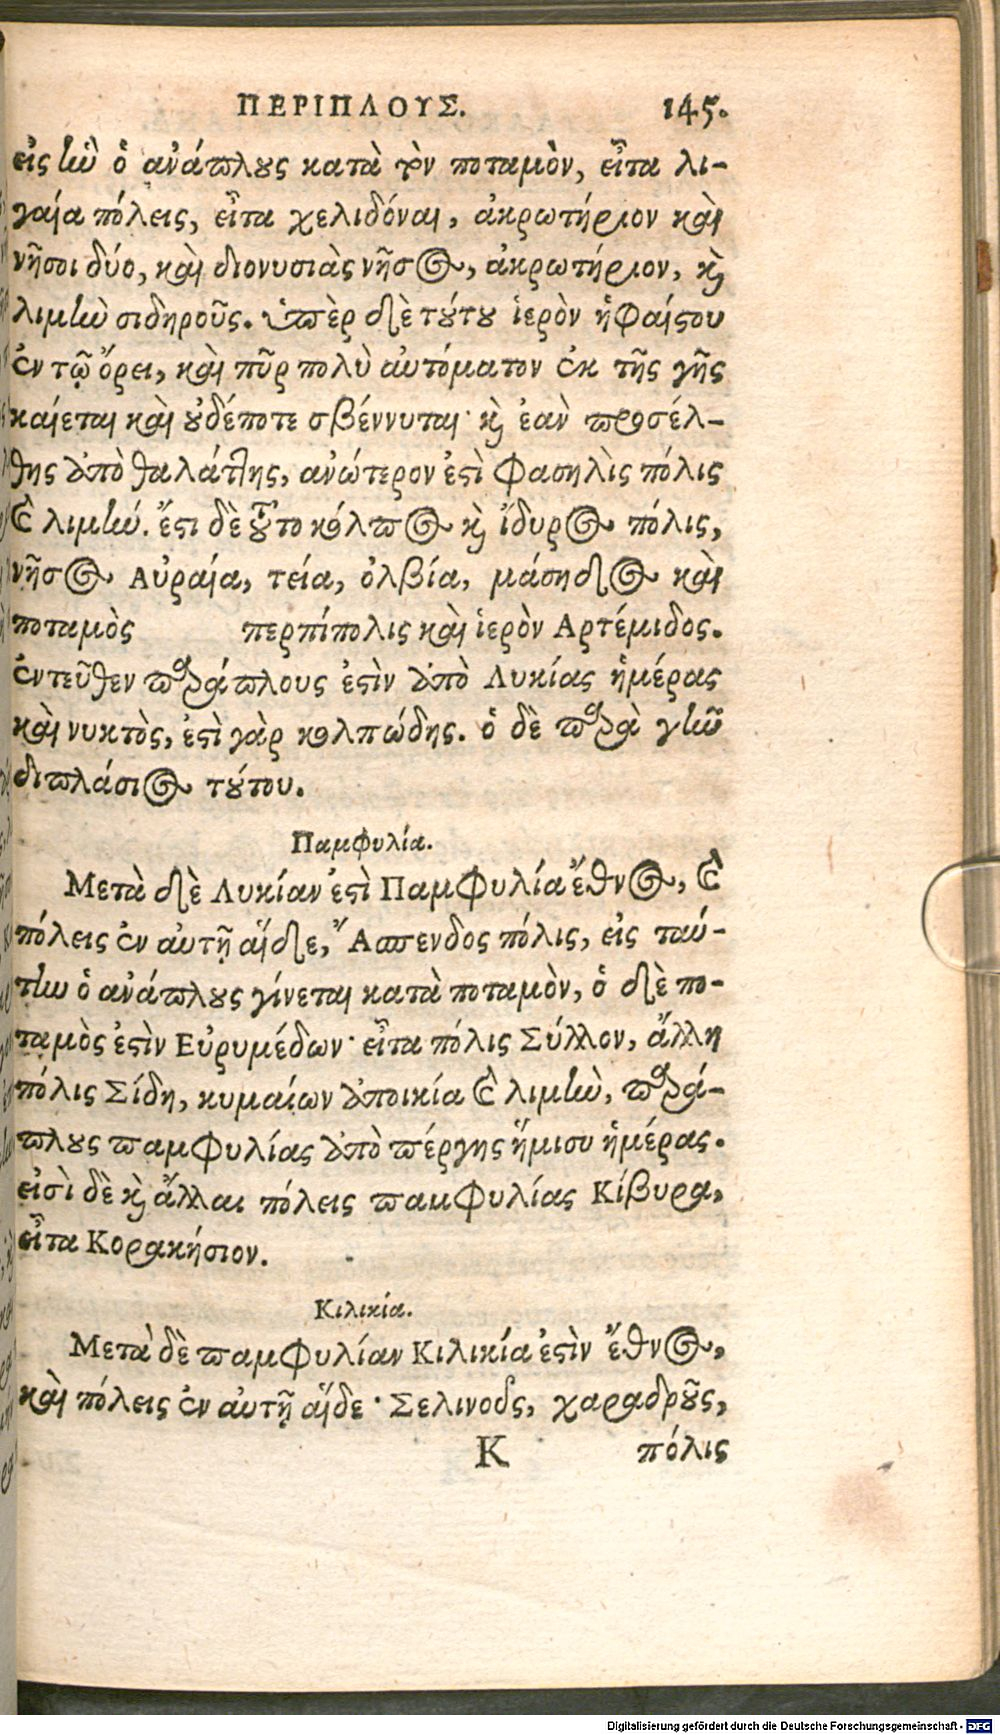 ΠΕΡΙΠΛΟΥΣ. 145.
εἰς ἣν ὁ ἀνάπλους κατὰ τὸν ποταμὸν, εἶτα λι-
γαία πόλεις, εἶτα χελιδόναι, ἀκρωτήριον καὶ
νῆσοι δύο, καὶ διονυσιὰς νῆσος, ἀκρωτήριον, καὶ
λιμὴν σιδηροῦς. ὑπὲρ δὲ τούτου ἱερὸν ἡφαίστου
ἐν τῷ ὄρει, καὶ πῦρ πολὺ αὐτόματον ἐκ τῆς γῆς
καίεται καὶ οὐδέποτε σβέννυται· καὶ ἐὰν προσέλ-
θης ἀπὸ θαλάττης, ἀνώτερον ἐστὶ Φασηλὶς πόλις
καὶ λιμήν. ἔστι δὲ τοῦτο κόλπος καὶ ἴδυρος πόλις,
νῆσος Αὐραία, τεία, ὀλβία, μάσηδος καὶ
ποταμὸς περπίπολις καὶ ἱερὸν Αρτέμιδος.
ἐντεῦθεν παράπλους ἐστὶν ἀπὸ Λυκίας ἡμέρας
καὶ νυκτὸς, ἐστὶ γὰρ κολπώδης. ὁ δὲ παρὰ γῆν
διπλάσιος τούτου.
Παμφυλία.
Μετὰ δὲ Λυκίαν ἐστὶ Παμφυλία ἔθνος, καὶ
πόλεις ἐν αὐτῇ αἵδε, Ἄσπενδος πόλις, εἰς ταύ-
την ὁ ἀνάπλους γίνεται κατὰ ποταμὸν, ὁ δὲ πο-
ταμὸς ἐστὶν Εὐρυμέδων· εἶτα πόλις Σύλλον, ἄλλη
πόλις Σίδη, κυμαίων ἀποικία καὶ λιμὴν, παρά-
πλους παμφυλίας ἀπὸ πέργης ἥμισυ ἡμέρας.
εἰσὶ δὲ καὶ ἄλλαι πόλεις παμφυλίας Κίβυρα,
εἶτα Κορακήσιον.
Κιλικία.
Μετὰ δὲ παμφυλίαν Κιλικία ἐστὶν ἔθνος,
καὶ πόλεις ἐν αὐτῇ αἵδε· Σελινοῦς, χαραδροῦς,
K πόλις
Digitalisierung gefördert durch die Deutsche Forschungsgemeinschaft - DFG